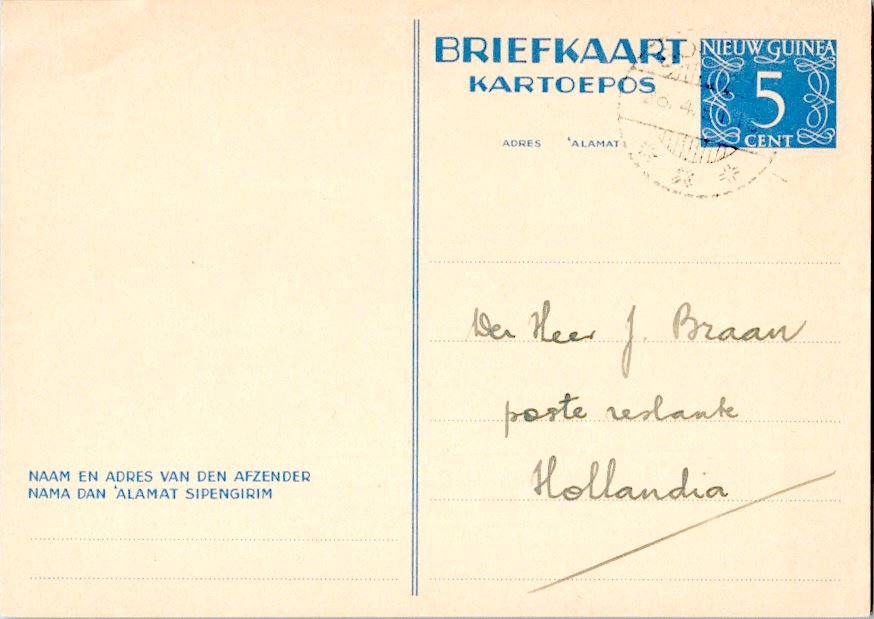 BRIEFKAART
KARTOEPOS
NIEUW GUINEA
5
CENT
ADRES 'ALAMAT
Den Heer J. Braan
poste restante
Hollandia
NAAM EN ADRES VAN DEN AFZENDER
NAMA DAN 'ALAMAT SIPENGIRIM